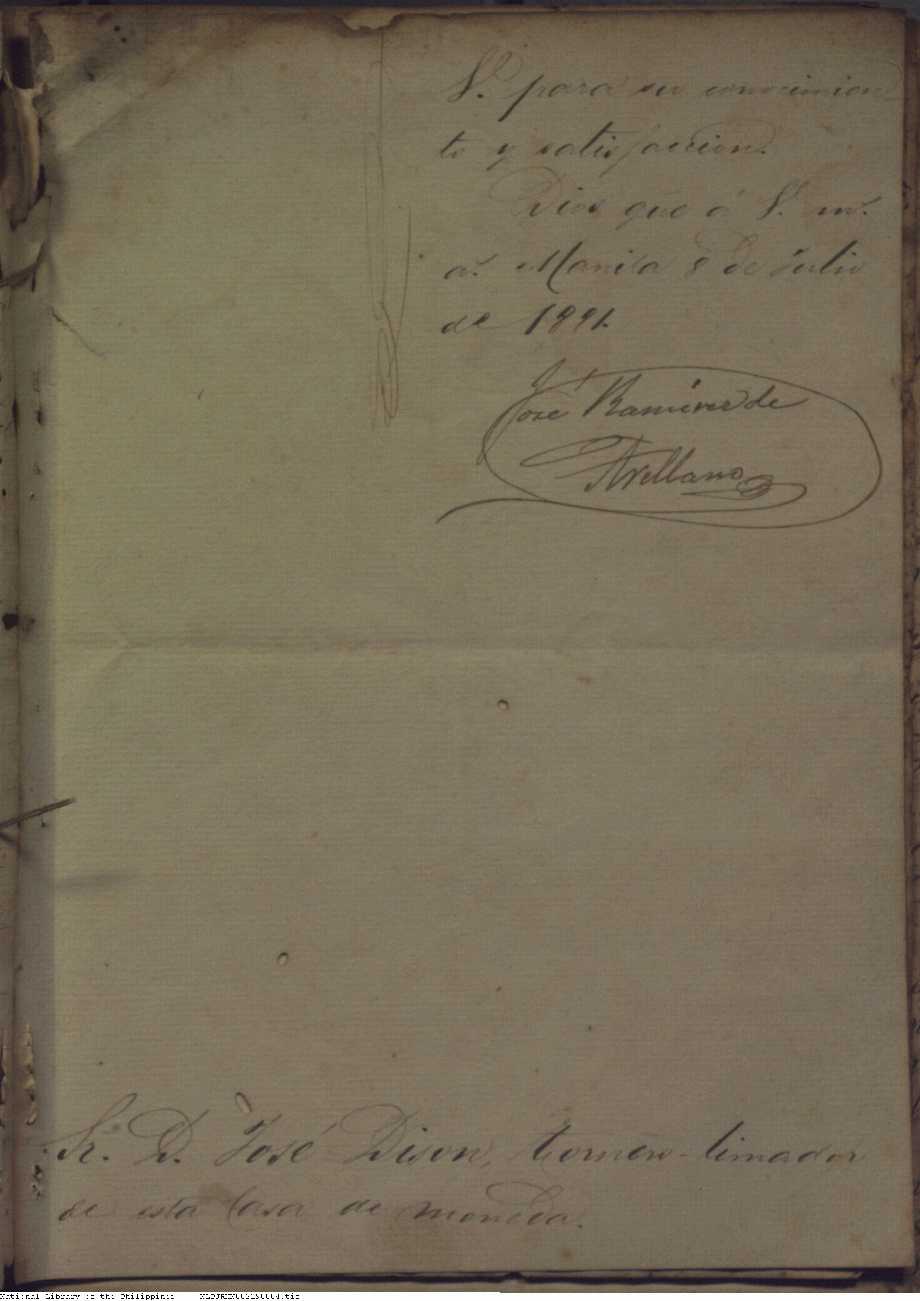 V. para su conocimien
to y satisfaccion.
Dios gue á V. m.s
a.s Manila 8 de Julio
de 1891.
José Ramirez de
Arellano
Sr. D. José Dison, tornero-limador
de esta Casa de moneda.
National Library of the Philippines